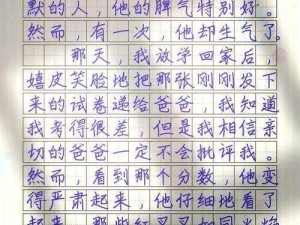 默的人，他的脾气特别好。
然而，有一次，他却生气了。
那天，我放学回家后，
嬉皮笑脸地把那张刚刚发下
来的试卷递给爸爸，我知道
我考得很差，但是我相信亲
切的爸爸一定不会批评我。
然而，看到那个分数，他变
得严肃起来，他仔细地看了
起来，那些红叉叉如同火焰